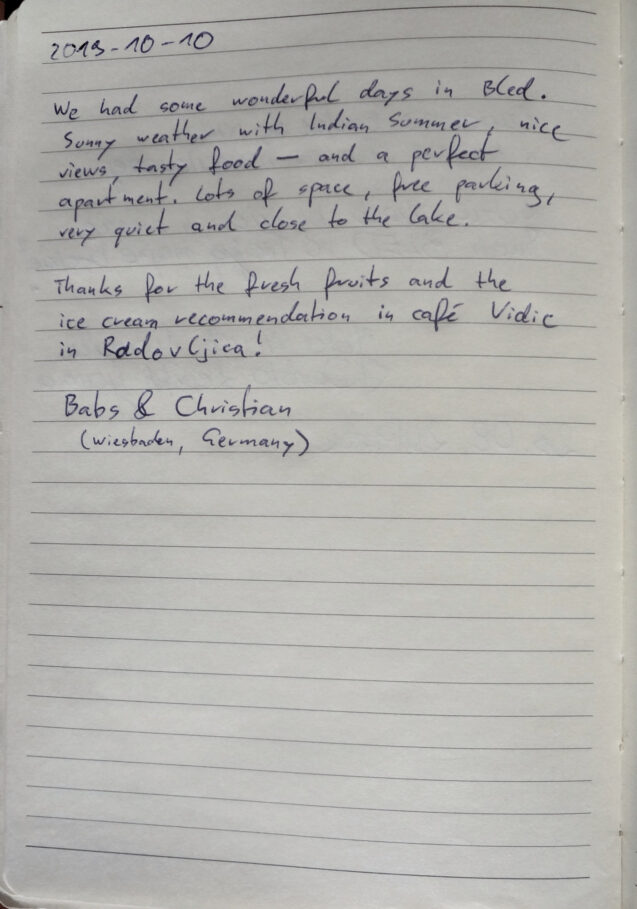 2019-10-10
We had some wonderful days in Bled.
Sunny weather with Indian Summer, nice
views, tasty food — and a perfect
apartment. Lots of space, free parking,
very quiet and close to the lake.
Thanks for the fresh fruits and the
ice cream recommendation in café Vidic
in Radovljica!
Babs & Christian
(Wiesbaden, Germany)